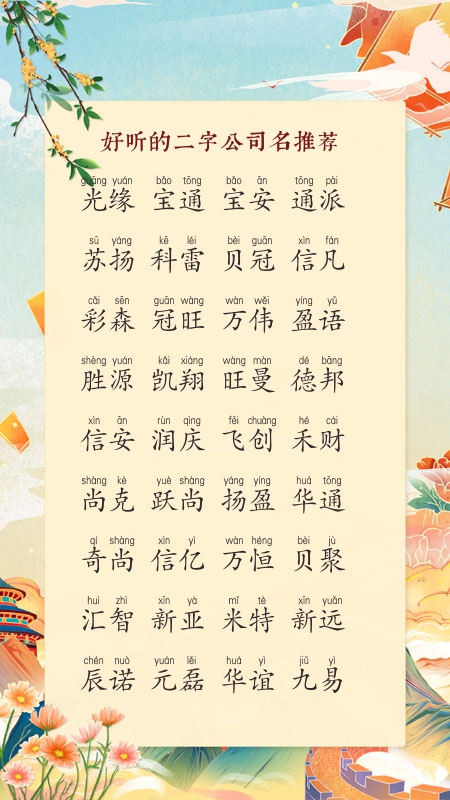 好听的二字公司名推荐
guāng yuán bǎo tōng bǎo ān tōng pài
光缘 宝通 宝安 通派
sū yáng kē léi bèi guān xìn fán
苏扬 科雷 贝冠 信凡
cǎi sēn guān wàng wàn wěi yíng yǔ
彩森 冠旺 万伟 盈语
shèng yuán kǎi xiáng wàng màn dé bāng
胜源 凯翔 旺曼 德邦
xìn ān rùn qìng fēi chuàng hé cái
信安 润庆 飞创 禾财
shàng kè yuè shàng yáng yíng huá tōng
尚克 跃尚 扬盈 华通
qí shàng xìn yì wàn héng bèi jù
奇尚 信亿 万恒 贝聚
huì zhì xīn yà mǐ tè xīn yuǎn
汇智 新亚 米特 新远
chén nuò yuán lěi huá yì jiǔ yì
辰诺 元磊 华谊 九易